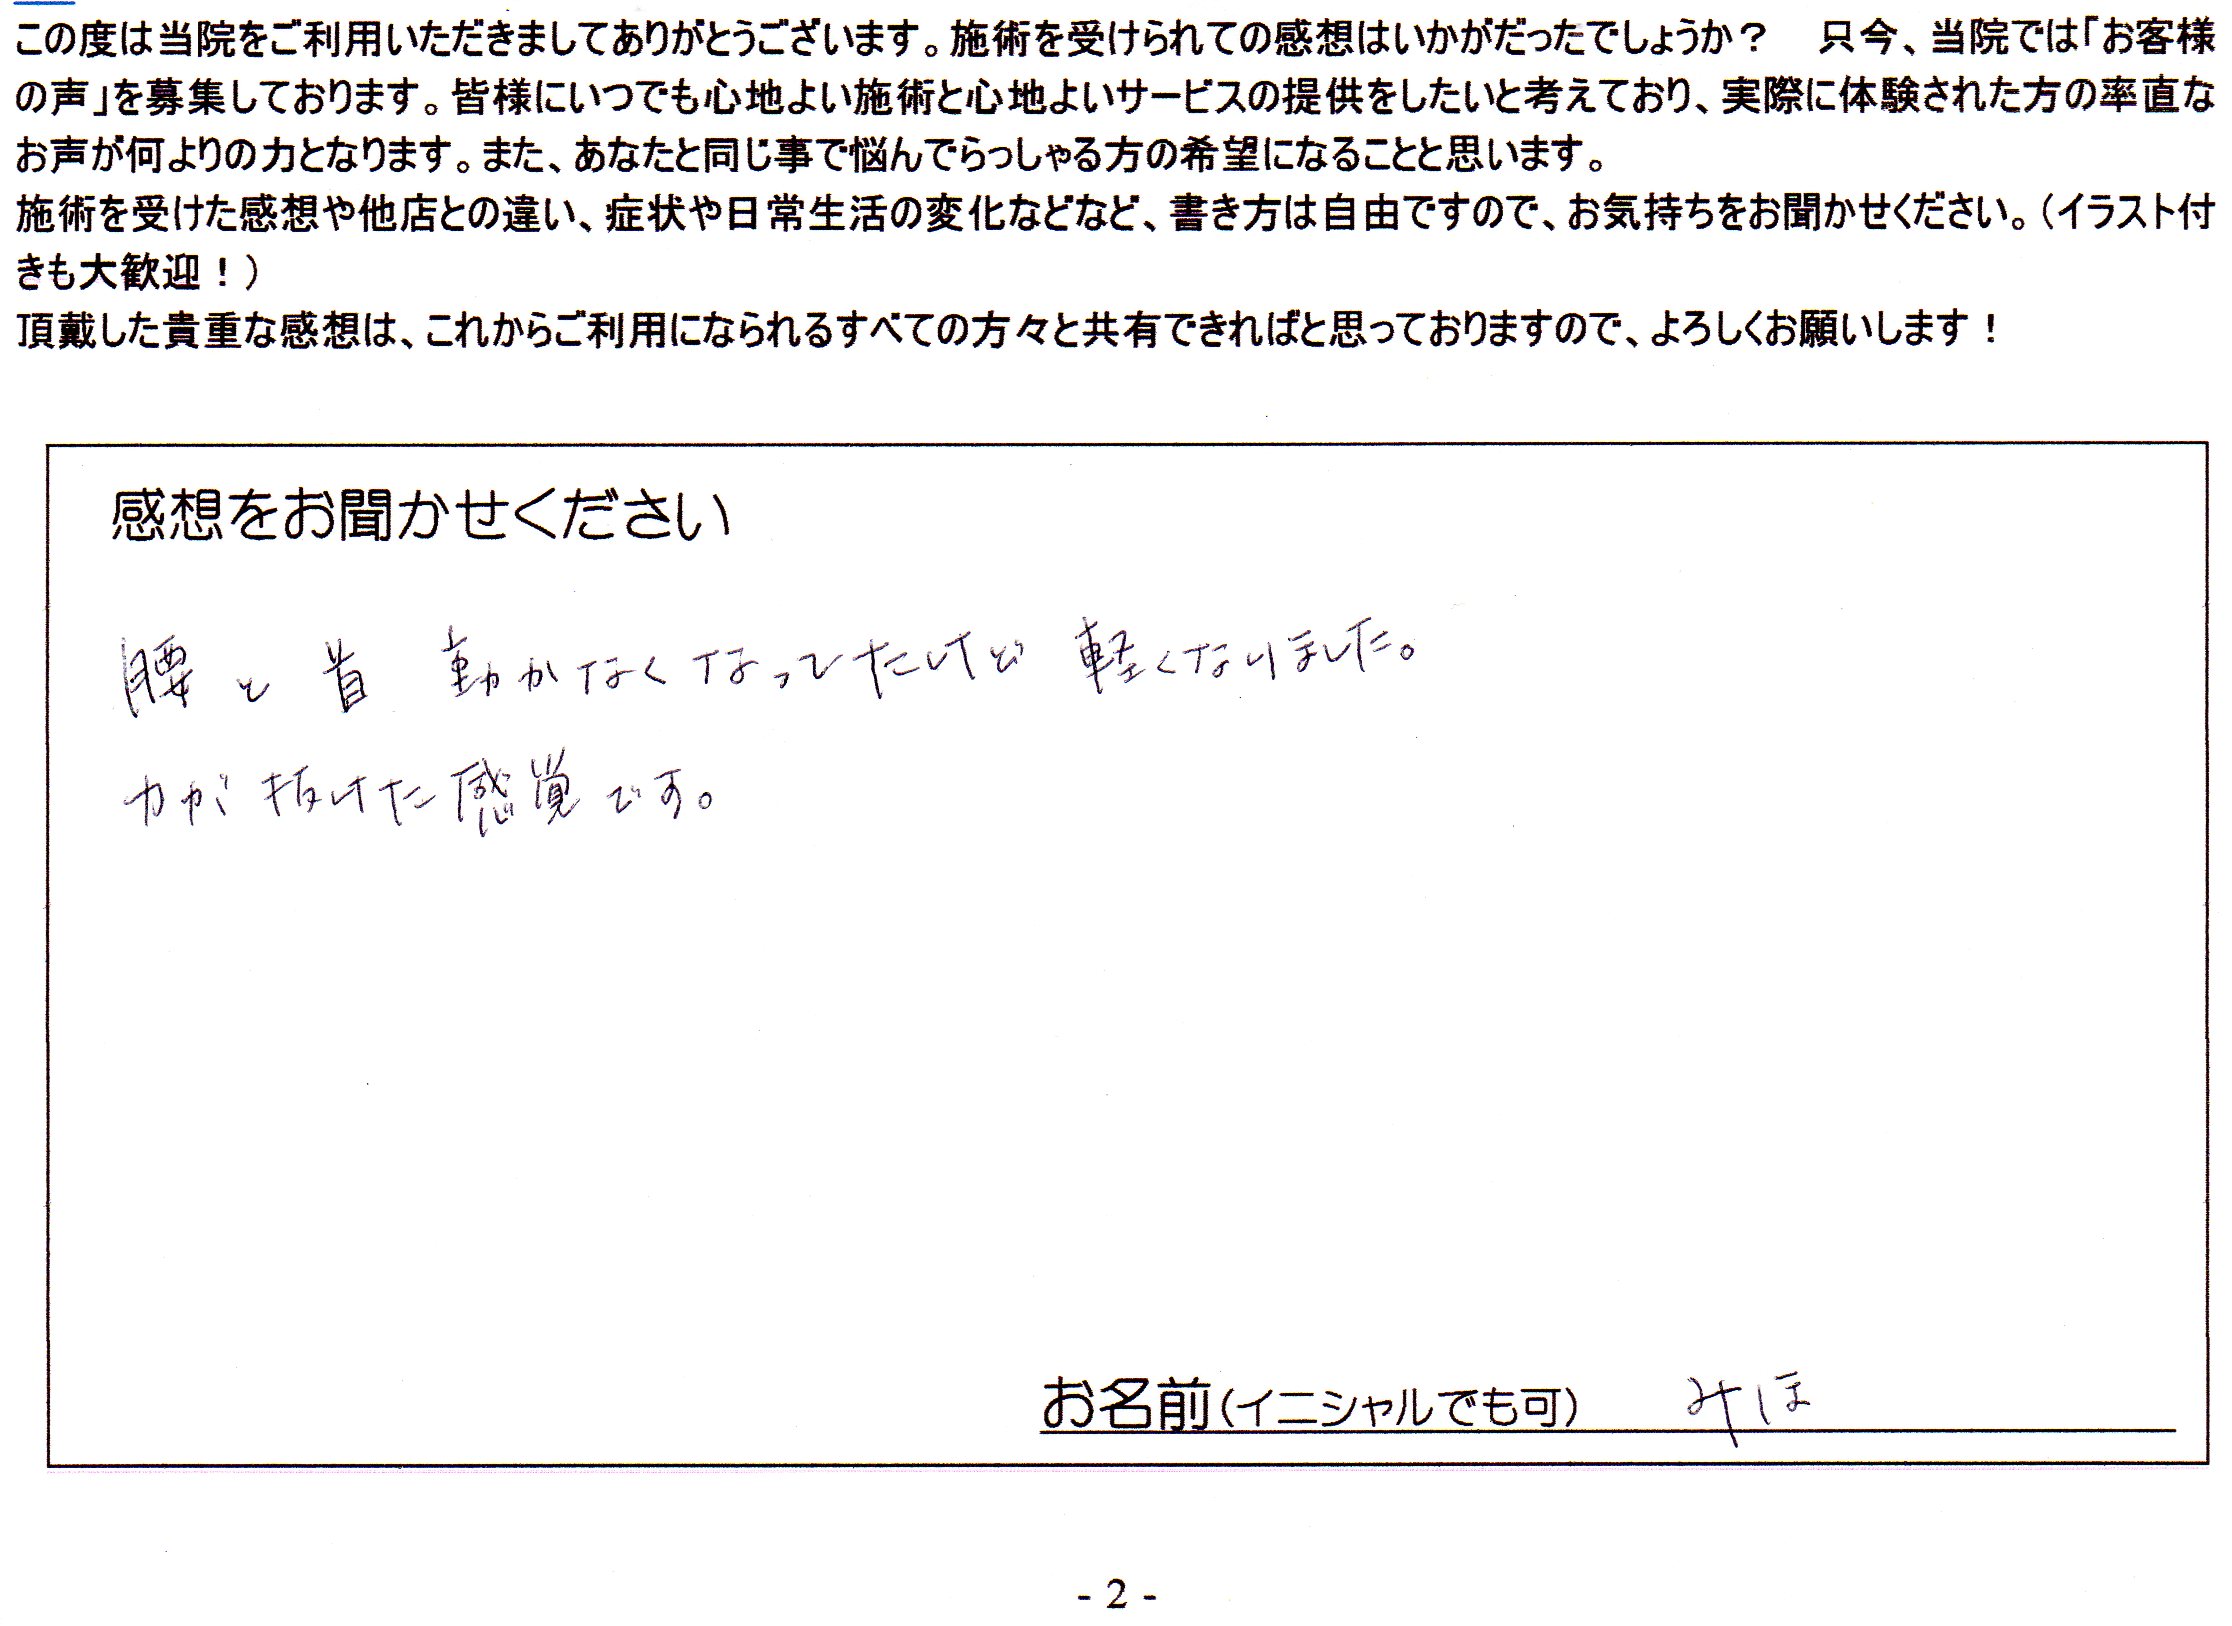 この度は当院をご利用いただきましてありがとうございます。施術を受けられての感想はいかがだったでしょうか？　只今、当院では「お客様
の声」を募集しております。皆様にいつでも心地よい施術と心地よいサービスの提供をしたいと考えており、実際に体験された方の率直な
お声が何よりの力となります。また、あなたと同じ事で悩んでらっしゃる方の希望になることと思います。
施術を受けた感想や他店との違い、症状や日常生活の変化などなど、書き方は自由ですので、お気持ちをお聞かせください。（イラスト付
きも大歓迎！）
頂戴した貴重な感想は、これからご利用になられるすべての方々と共有できればと思っておりますので、よろしくお願いします！
感想をお聞かせください
腰と首 動かなくなってたけど 軽くなりました。
力が抜けた感覚です。
お名前（イニシャルでも可） みほ
- 2 -